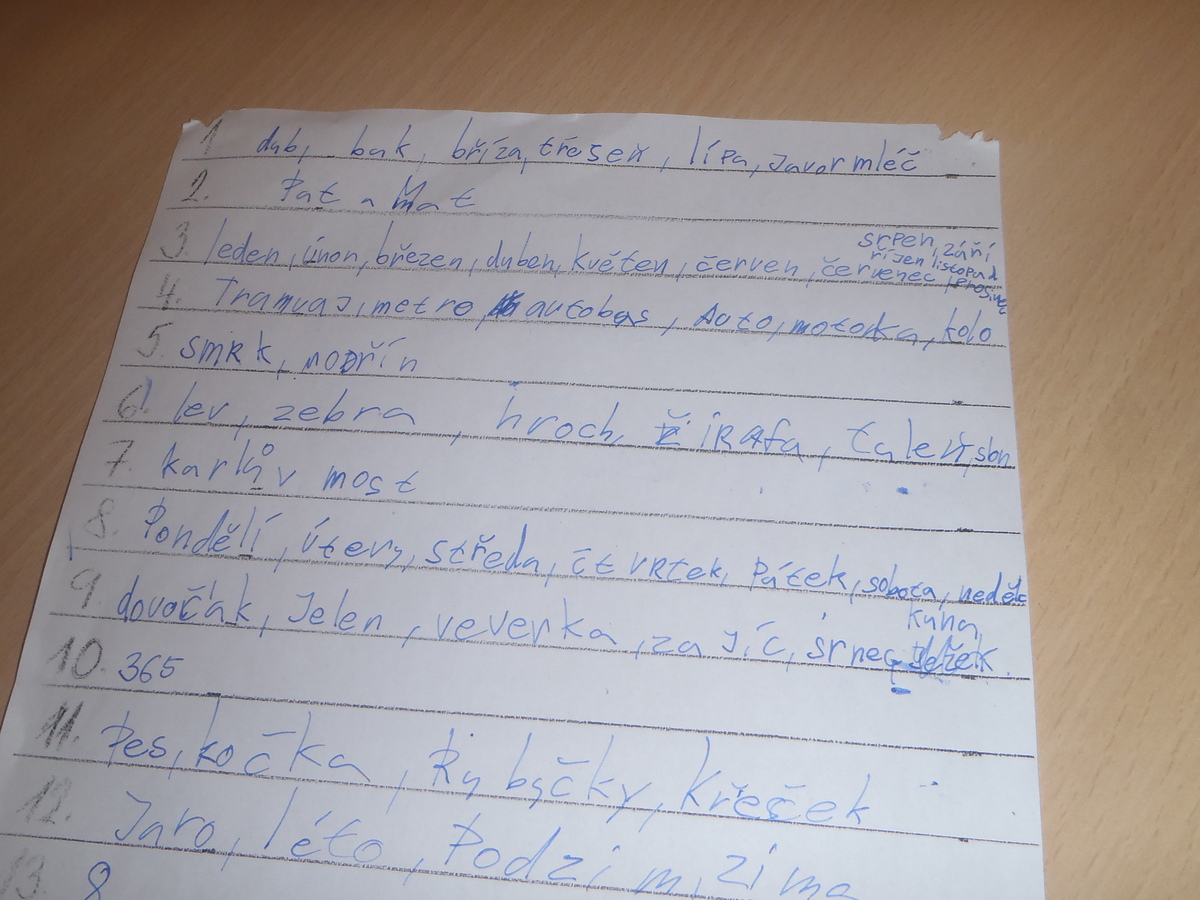 1 dub, buk, bříza, třešeň, lípa, Javor mléč
2. Pat a Mat
3. leden, únor, březen, duben, květen, červen, červenec, srpen, září
říjen listopad
prosinec
4. Tramvaj, metro, autobus, Auto, motorka, kolo
5. smrk, modřín
6. lev, zebra, hroch, žiRAfa, tuleň, slon
7. karlův most
8. Pondělí, útery, středa, čtvrtek, Pátek, sobota, neděle
9. dovočák, Jelen, veverka, zajíc, srnec, kuna,
ježek
10. 365
11. Pes, kočka, Rybyčky, křeček
12. Jaro, léto, Podzim, zima
13. 8